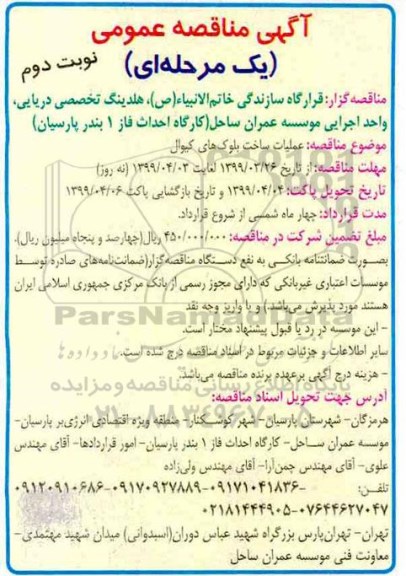 آگهی مناقصه عمومی
(یک مرحله‌ای)
نوبت دوم
مناقصه‌گزار: قرارگاه سازندگی خاتم‌الانبیاء(ص)، هلدینگ تخصصی دریایی،
واحد اجرایی موسسه عمران ساحل(کارگاه احداث فاز ۱ بندر پارسیان)
موضوع مناقصه: عملیات ساخت بلوک‌های کیوال
مهلت مناقصه: از تاریخ ۱۳۹۹/۰۳/۲۶ لغایت ۱۳۹۹/۰۴/۰۳ (نه روز)
تاریخ تحویل پاکت: ۱۳۹۹/۰۴/۰۴ و تاریخ بازگشایی پاکت ۱۳۹۹/۰۴/۰۶
مدت قرارداد: چهار ماه شمسی از شروع قرارداد.
مبلغ تضمین شرکت در مناقصه: ۴۵۰/۰۰۰/۰۰۰ ریال(چهارصد و پنجاه میلیون ریال).
بصورت ضمانتنامه بانکی به نفع دستگاه مناقصه‌گزار(ضمانت‌نامه‌های صادره توسط
موسسات اعتباری غیربانکی که دارای مجوز رسمی از بانک مرکزی جمهوری اسلامی ایران
هستند مورد پذیرش می‌باشد) و یا واریز وجه نقد
- این موسسه در رد یا قبول پیشنهاد مختار است.
سایر اطلاعات و جزئیات مربوط در اسناد مناقصه درج شده است.
- هزینه درج آگهی برعهده برنده مناقصه می‌باشد.
آدرس جهت تحویل اسناد مناقصه:
هرمزگان- شهرستان پارسیان- شهر کوشکنار- منطقه ویژه اقتصادی انرژی‌بر پارسیان-
موسسه عمران ساحل- کارگاه احداث فاز ۱ بندر پارسیان- امور قراردادها- آقای مهندس
علوی- آقای مهندس چمن‌آرا- آقای مهندس ولی‌زاده
تلفن: ۰۹۱۷۱۰۴۱۸۳۶-۰۹۱۷۰۹۲۷۸۸۹-۰۹۱۲۰۹۱۰۶۸۶-
۰۷۶۴۴۶۲۷۰۴۷-۰۲۱۸۱۴۴۴۹۰۵
تهران- تهران‌پارس بزرگراه شهید عباس دوران(اسبدوانی) میدان شهید مهتمدی-
معاونت فنی موسسه عمران ساحل
ParsNamadData
پایگاه اطلاع رسانی مناقصه و مزایده
۰۲۱-۸۸۳۴۹۶۷۰-۵